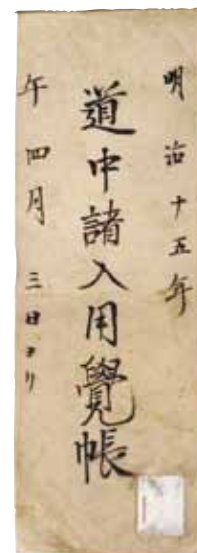 明治十五年
道中諸入用覺帳
午四月三日ヨリ